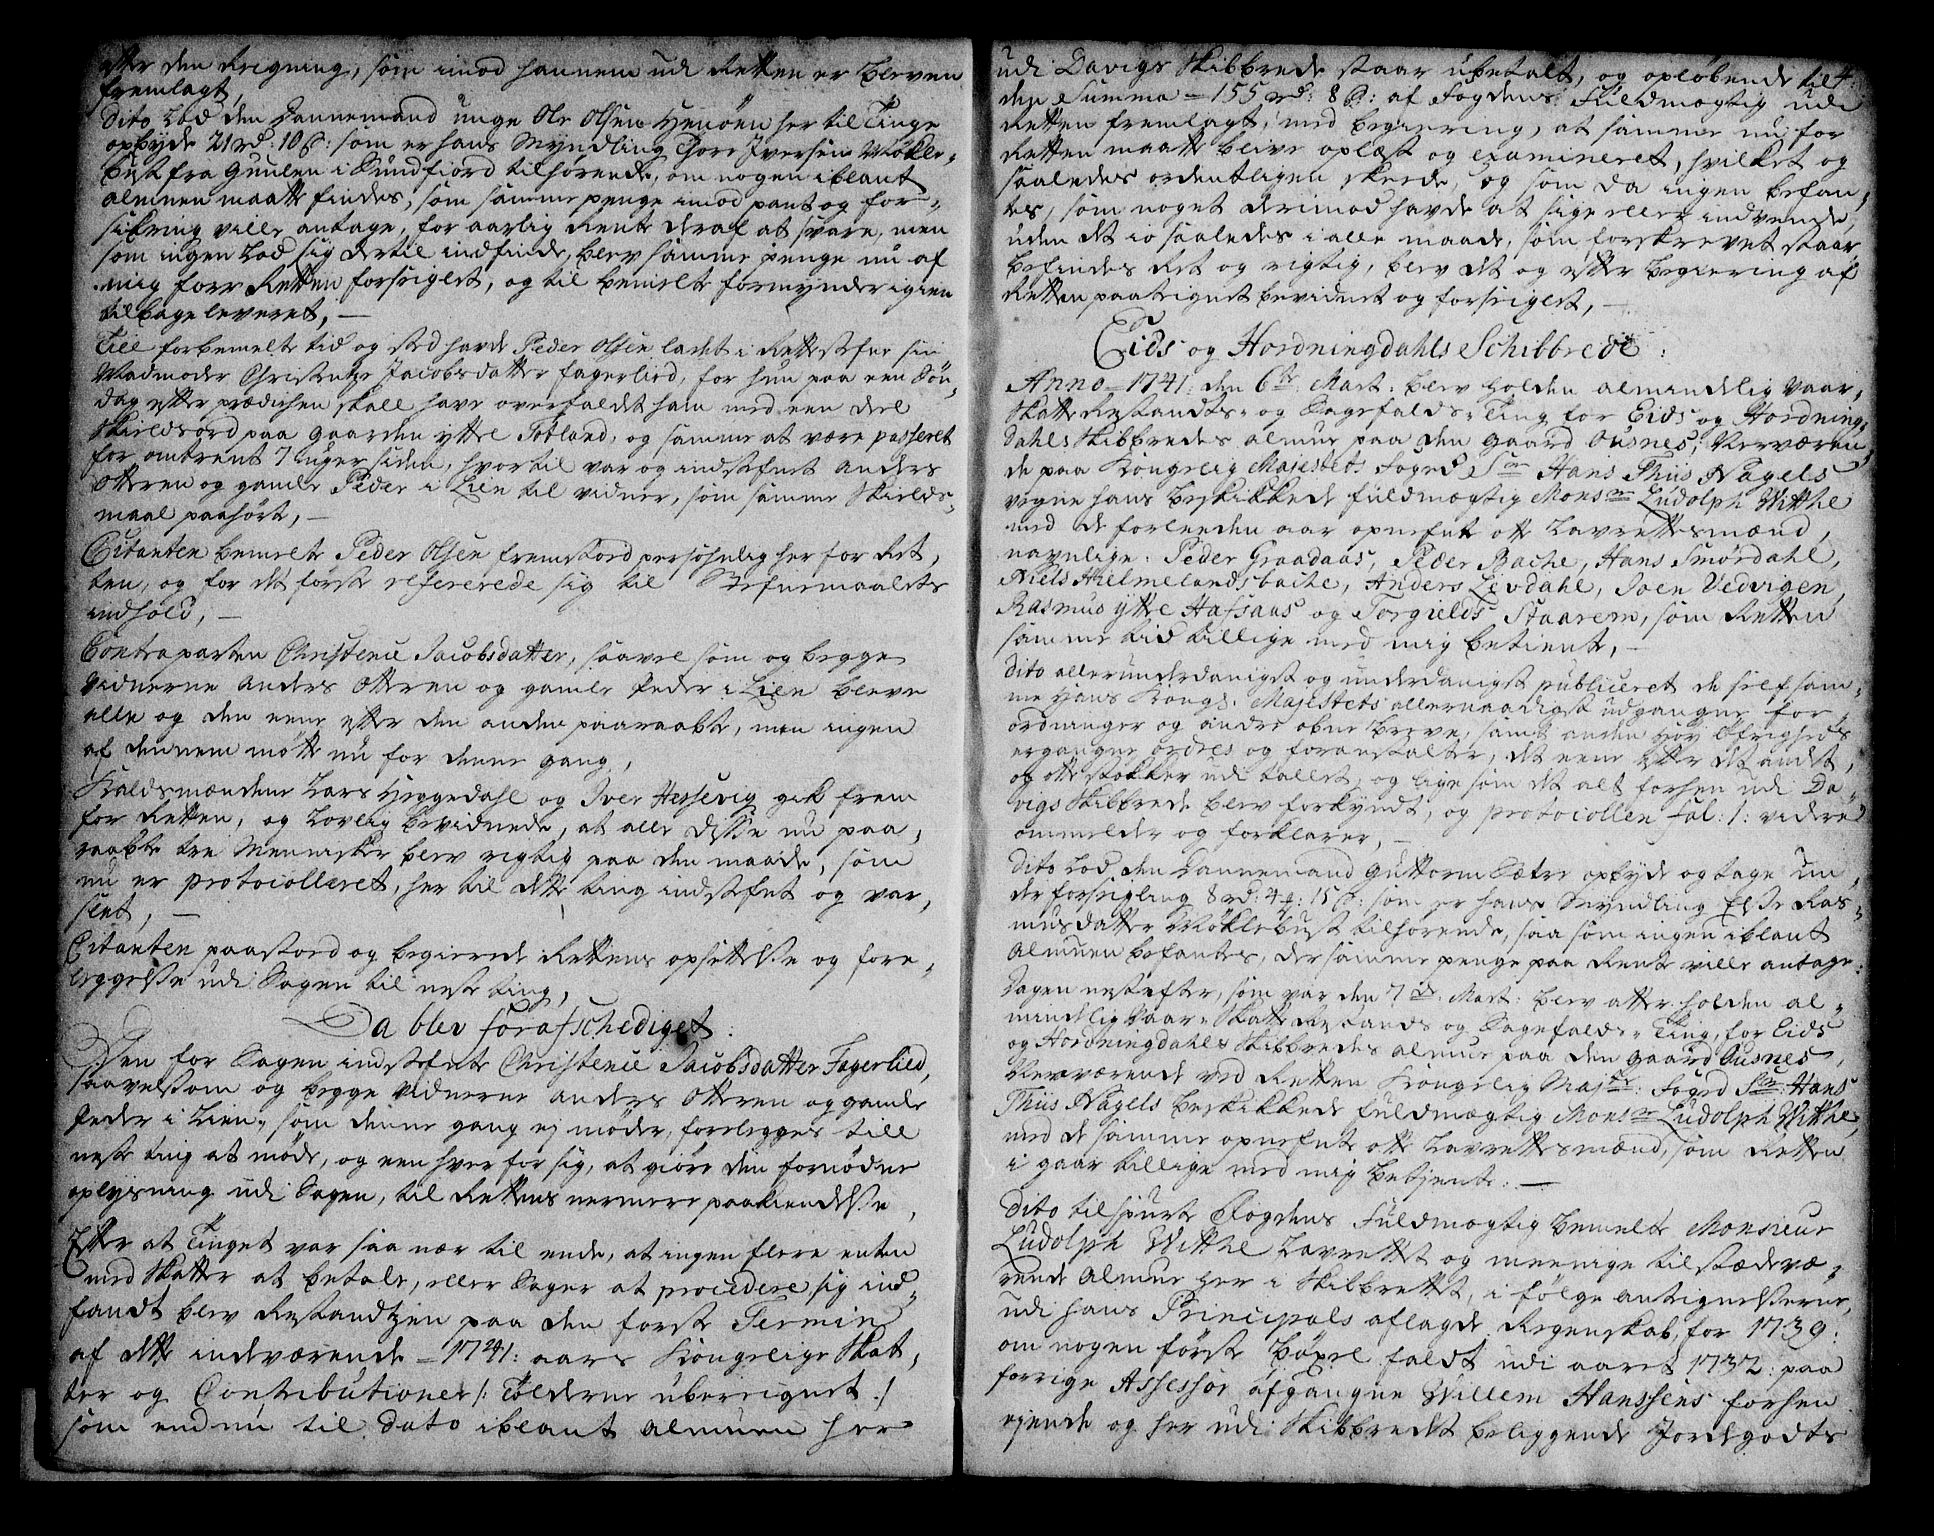 efter den Reigning, som imod hannem udi Retten er bleven
fremlagt,
Dito Lod den Dannemand unge Ole Olsen Henøen her til Tinge
opbyde 21 rd: 10 s: som er hans Myndling Thore Iversen Møkle-
bust fra Guulen i Sundfiord tilhørende, om nogen iblant
almuen maatte findes, som samme penge imod pant og for-
sikring ville antage, for aarlig Rente deraf at svare, men
som ingen Lod sig dertil indfinde, blev samme penge nu af
mig forr Retten forseiglet, og til bemelte formynder igien
tilbage leveret, —
Till forbemelte tid og sted havde Peder Olsen ladet i Rettestefne sin
Madmoder Christentze Jacobsdatter Fagerliod, for hun paa een Søn-
dag efter prædichen skall have overfaldet ham med een deel
Skieldsord paa gaarden ytre Totland, og samme at være passeret
for omtrent 7 uger siden, hvortil var og indstefnet Anders
Otteren og gamle Peder i Lien til vidner, som samme Skields-
maal paahørte, —
Citanten bemelte Peder Olsen fremstod persohnlig her for Ret-
ten, og for det første refererede sig til Stefnemaalets
indhold, —
Contraparten Christence Jacobsdatter, saavel som og begge
vidnerne Anders Otteren og gamle Peder i Lien bleve
alle og den eene efter den anden paaraabte, men ingen
af dennem møtte nu for denne gang,
Kaldsmændene Lars Hyggedahl og Iver Hessevig gik frem
for Retten, og Lovlig bevidnede, at alle disse nu paa-
raabte tre Mennisker blev rigtig paa den maade, som
nu er protocolleret, her til dette ting indstefnt og var-
slet, —
Citanten paastod og begierede Rettens opsettelse og fore-
leggelse udi Sagen til neste ting,
Da blev forafschediget.
Den for Sagen indstefnte Christence Jacobsdatter Fagerlied,
saavelsom og begge vidnerne Anders Otteren og gamle
Peder i Lien, som denne gang ej møder, forelegges till
neste ting at møde, og een hver for sig, at giøre den fornødne
oplysning udi Sagen, til Rettens nermere paakiendelse,
Efter at Tinget var saa nær til ende, at ingen flere enten
med Skatter at betale, eller Sager at procedere sig ind-
fandt blev Restandtzen paa den første Termin
af dette indeværende 1741: aars Kongelige Skat-
ter og Contributioner /: Tolderne uberegnet :/
som endnu til dato iblant Almuen her
udi Davigs Skibbrede staar ubetalt, og opløbende til 4.
den Summa 155 rd: 8 s: af Fogdens Fuldmægtig udi
Retten fremlagt, med begiering, at samme nu for
Retten maatte blive oplæst og examineret, hvilket og
saaledes ordentligen skeede, og som da ingen befan-
tes, som noget derimod havde at sige eller indvende,
uden det jo saaledes i alle maade, som forskrevet staar,
befindes Ret og rigtig, blev det og efter begiering af
Retten paategnet bevidnet og forseiglet, —
Eids og Hordningdahls Schibbrede:
Anno 1741: den 6te Mart: blev holden almindelig Vaar-
Skatte Restandts- og Sagefalds-Ting for Eids og Hordning-
dahls Skibbredes almue paa den gaard Ousnes; Nerværen-
de paa Kongelig Majestets foged Sr Hans Thiis Nagels
vegne hans beskikkede fuldmægtig Monsr Ludolph Witthe
med de forleeden aar opnefnte otte Lavrettesmænd,
navnlige: Peder Graadaas, Peder Bache, Hans Smørdahl,
Niels Hielmelandsbache, Anders Levdahl, Joen Vedvigen,
Rasmus ytre Hafsaas og Torgield Staarem, som Retten
samme tid tillige med mig betient, —
Dito allerunderdanigst og underdanigst publiceret de self sam-
me Hans Kongl: Majestets allernaadigst udgangne for-
ordninger og andre obne breve, samt anden Høy Øfrigheds
ergangne ordres og foranstalter, det eene efter det andet,
og otte støkker udi tallet, og lige som det alt forhen udi Da-
vigs Skibbrede blev forkyndt, og protocollen Fol: 1: videre
ommelder og forklarer, —
Dito Lod den Dannemand Guttorm Sætre opbyde og tage un-
der forseigling 8 rd: 4 ₰: 15 s: som er hans Myndling Else Ras-
musdatter Møklebust tilhørende, saa som ingen iblant
Almuen befantes, der samme penge paa Rente ville antage.
Dagen nestefter, som var den 7de Mart: blev atter holden al-
mindelig Vaar-Skatte Restands og Sagefalds-Ting, for Eids
og Hordningdahls Skibbredes almue paa den gaard Ousnes,
Nerværende ved Retten Kongelig Majts: Foged Sr: Hans
Thiis Nagels beskikkede fuldmægtig Monsr Ludolph Witthe,
med de samme opnefnte otte Lavrettesmænd, som Retten
i gaar tillige med mig betjente. —
Dito tilspurte Fogdens Fuldmægtig bemelte Monsieur
Ludolph Witthe Lavrettet og meenige tilstædevæ-
rende Almue her i Skibbredet, i følge antegnelserne
udi hans Principals aflagde Regenskab, for 1739:
om nogen første bøxel faldt udi aaret 1732: paa
forrige Assessor afgangne Willem Hanssens forhen
ejende og her udi Skibbredet beliggende Jordegodts